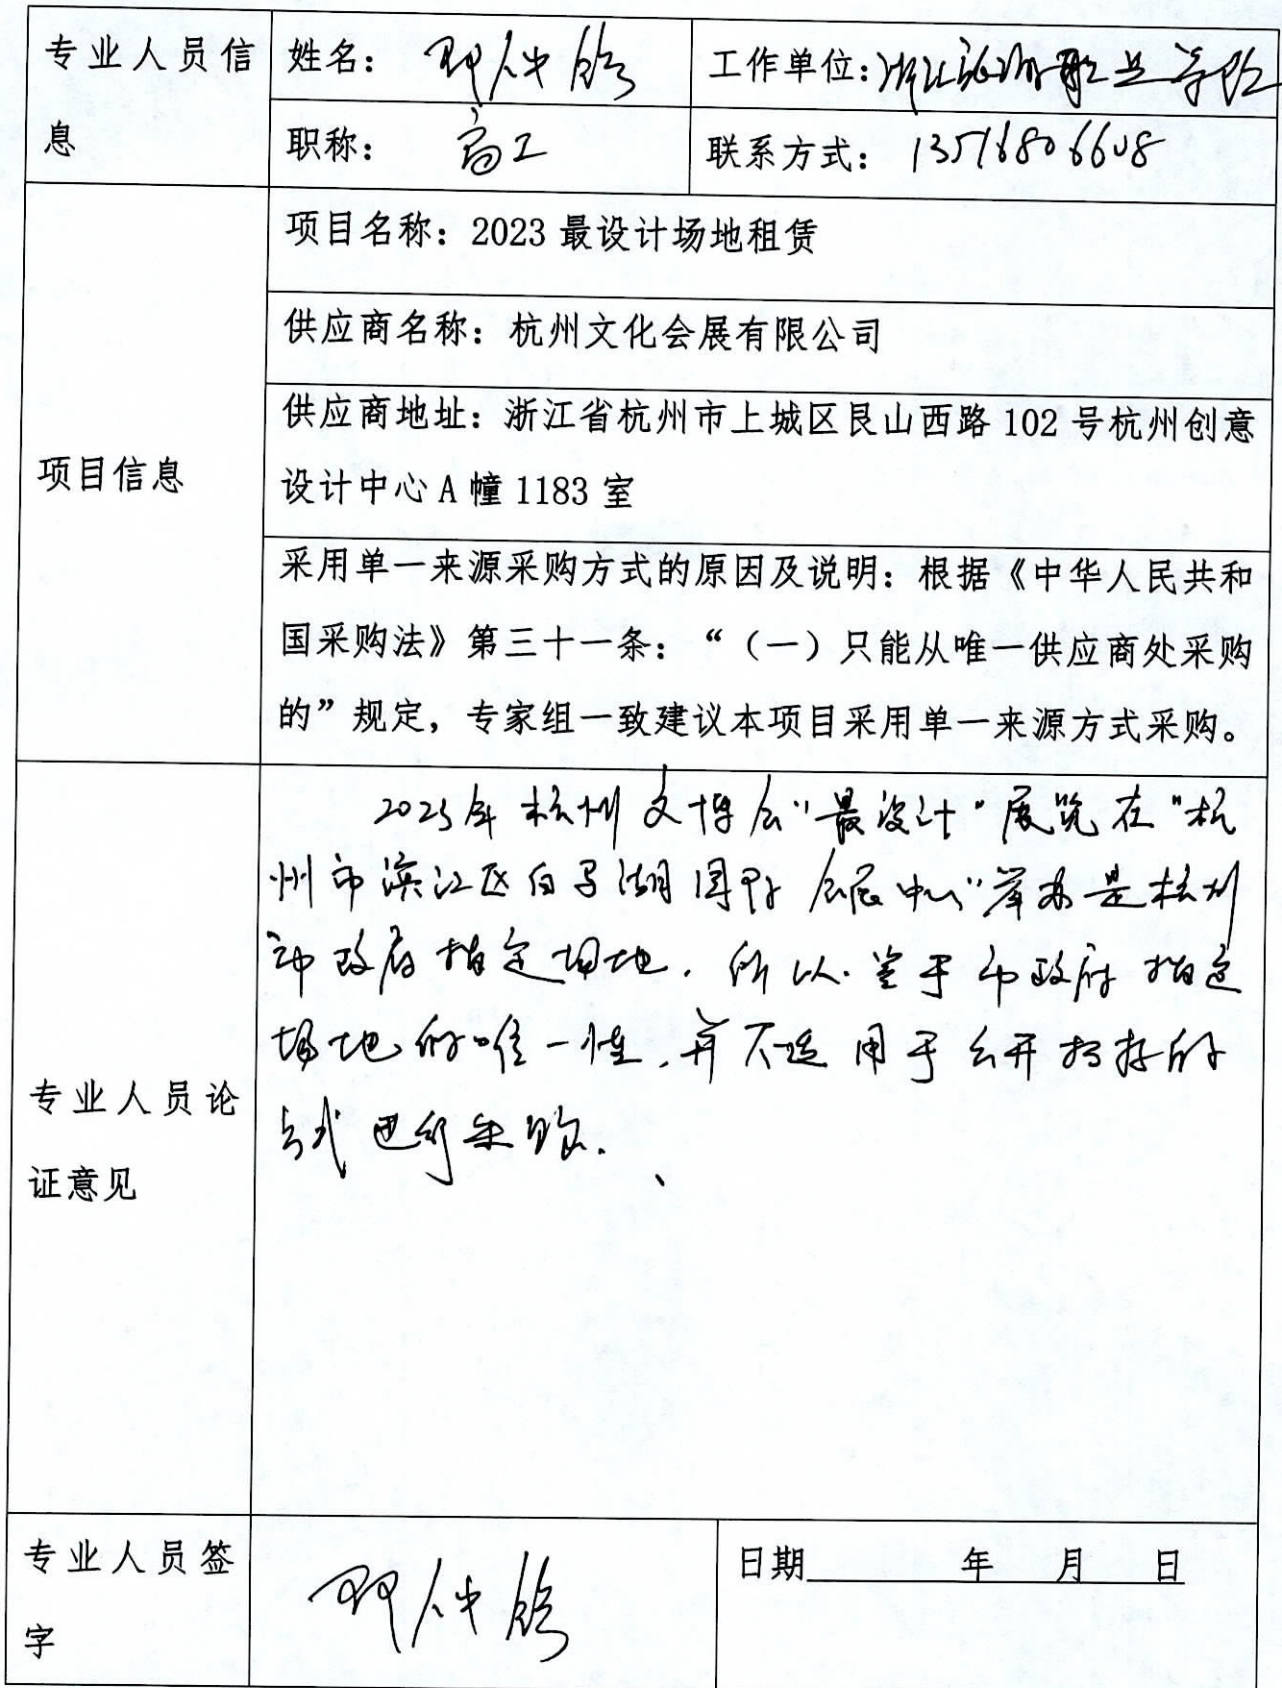 专业人员信
息
姓名：
工作单位：浙江 职业学院
职称： 高工
联系方式： 13516806608
项目信息
项目名称：2023 最设计场地租赁
供应商名称：杭州文化会展有限公司
供应商地址：浙江省杭州市上城区艮山西路 102 号杭州创意
设计中心 A 幢 1183 室
采用单一来源采购方式的原因及说明：根据《中华人民共和
国采购法》第三十一条：“（一）只能从唯一供应商处采购
的”规定，专家组一致建议本项目采用单一来源方式采购。
专业人员论
证意见
2023年杭州文博会“最设计”展览在“杭
州市滨江区白马湖国际会展中心”举办是杭州
市政府指定场地. 所以.鉴于市政府指定
场地的唯一性,并不适用于公开招标的
方式进行采购.
专业人员签
字
日期 年 月 日